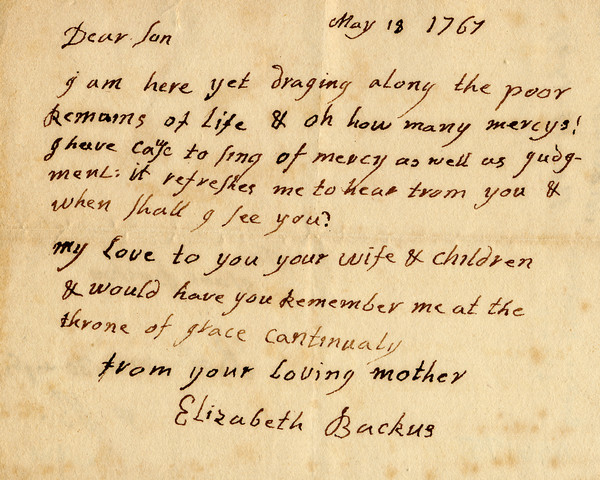 May 18 1767
Dear Son
I am here yet draging along the poor
Remains of Life & oh how many mercys!
I heave to sing of mercy as well as Judg-
ment: it refreshes me to hear from you &
when shall I see you?
my Love to you your wife & children
& would have you Remember me at the
throne of grace cantinualy
from your Loving mother
Elizabeth Backus